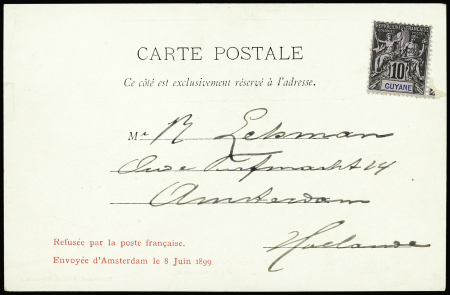 RÉPUBLIQUE FRANÇAISE
10
GUYANE
CARTE POSTALE
Ce côté est exclusivement réservé à l'adresse.
Mr
Turfmarkt 14
Amsterdam
Hollande
Refusée par la poste française.
Envoyée d'Amsterdam le 8 Juin 1899